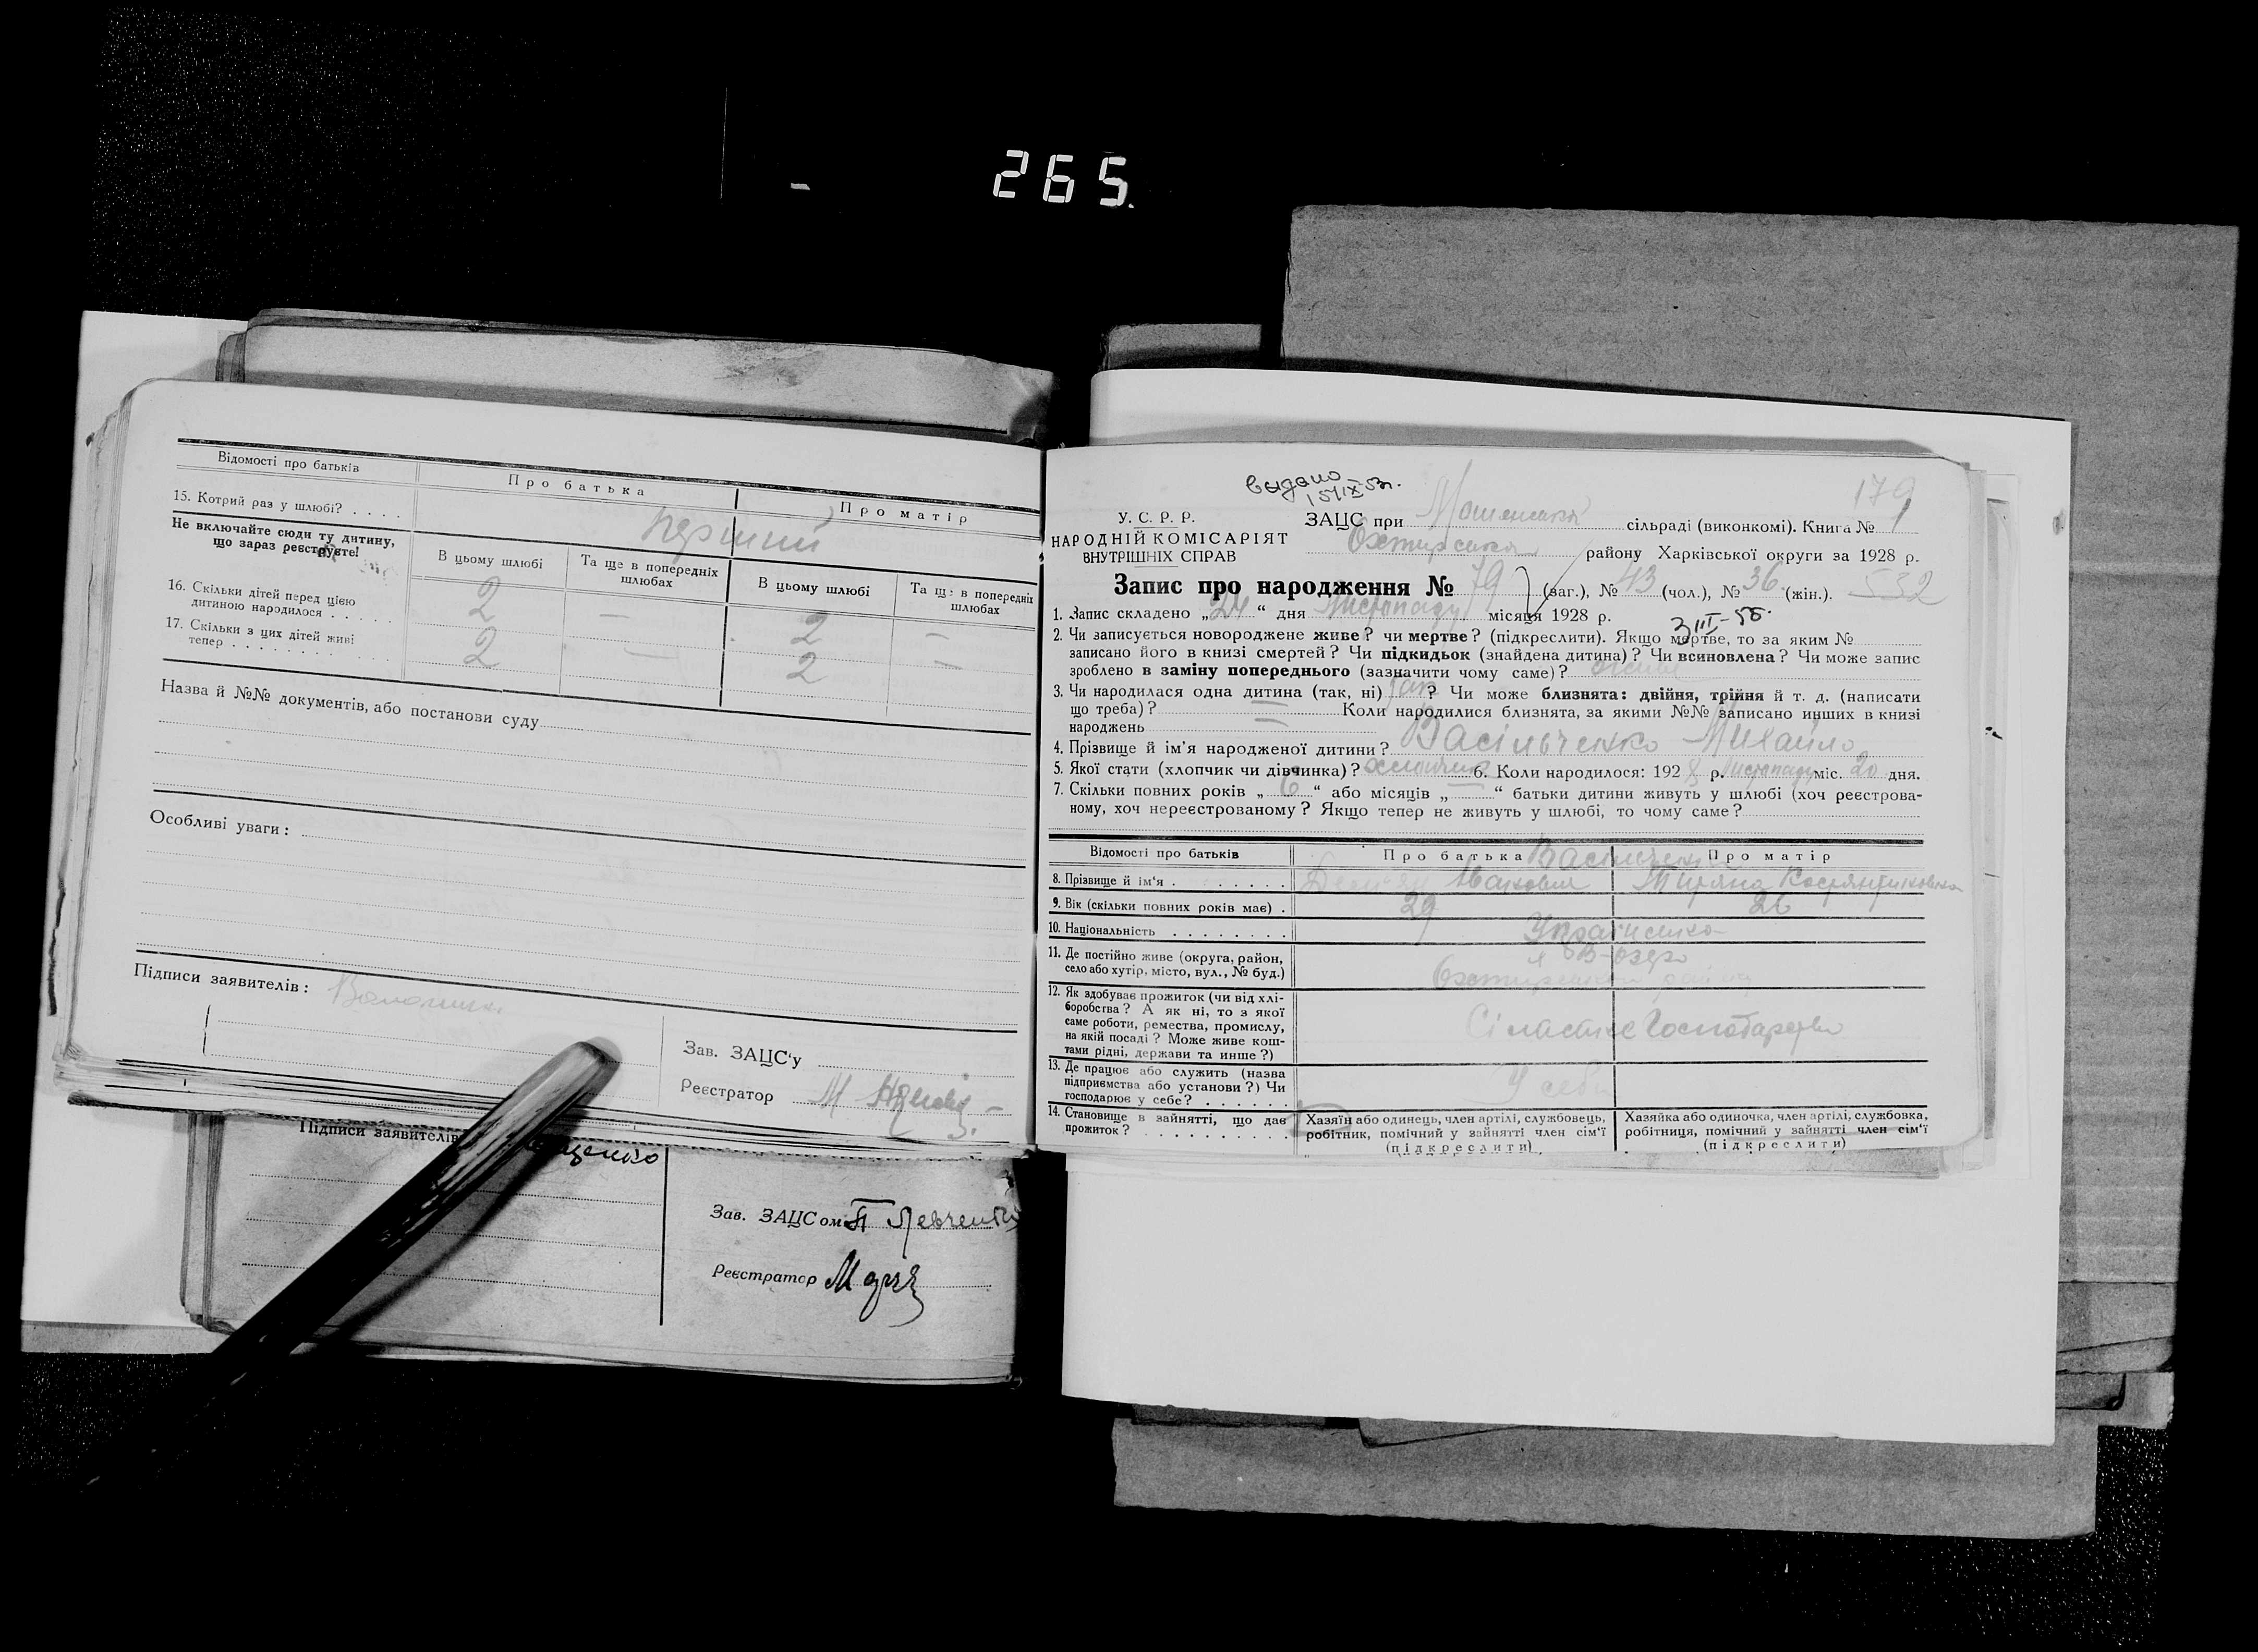 265.
Відомості про батьків
Про батька
Про матір
15. Котрий раз у шлюбі? . . . .
перший
Не включайте сюди ту дитину,
що зараз реєструєте!
В цьому шлюбі
Та ще в попередніх
шлюбах
В цьому шлюбі
Та ще в попередніх
шлюбах
16. Скільки дітей перед цією
дитиною народилося . . . . .
2 — 2 —
17. Скільки з цих дітей живі
тепер . . . . . . . . . . . .
2 — 2 —
Назва й №№ документів, або постанови суду
Особливі уваги:
Підписи заявителів:
Зав. ЗАЦС'у
Реєстратор М
Підписи заявителів
Зав. ЗАЦСом П Левченко
Реєстратор
выдано
15/IX-53г.
179
У. С. Р. Р.
НАРОДНІЙ КОМІСАРІЯТ
ВНУТРІШНІХ СПРАВ
ЗАЦС при сільраді (виконкомі). Книга № 1
Охтирського району Харківської округи за 1928 р.
Запис про народження № 79 (заг.), № 43 (чол.), № 36 (жін.). 532
1. Запис складено „24“ дня Листопаду місяця 1928 р.
3 III-55.
2. Чи записується новороджене живе? чи мертве? (підкреслити). Якщо мертве, то за яким №
записано його в книзі смертей? Чи підкидьок (знайдена дитина)? Чи всиновлена? Чи може запис
зроблено в заміну попереднього (зазначити чому саме)? живе
3. Чи народилася одна дитина (так, ні) так? Чи може близнята: двійня, трійня й т. д. (написати
що треба)? — Коли народилися близнята, за якими №№ записано инших в книзі
народжень —
4. Прізвище й ім'я народженої дитини? Васильченко Михайло
5. Якої стати (хлопчик чи дівчинка)? хлопчик 6. Коли народилося: 1928 р. Листопаду міс. 20 дня.
7. Скільки повних років „6“ або місяців „—“ батьки дитини живуть у шлюбі (хоч реєстрова-
ному, хоч нереєстрованому? Якщо тепер не живуть у шлюбі, то чому саме?
Відомості про батьків
Про батька
Про матір
Васильченко
8. Прізвище й ім'я . . . . . . . .
Іванович
Костянтиновна
9. Вік (скільки повних років має) .
29
26
10. Національність . . . . . . . .
Українська
11. Де постійно живе (округа, район,
село або хутір, місто, вул., № буд.)
В-Озеро
Охтирського району
12. Як здобуває прожиток (чи від хлі-
боробства? А як ні, то з якої
саме роботи, ремества, промислу,
на якій посаді? Може живе кош-
тами рідні, держави та инше?)
Сільське Господарство
13. Де працює або служить (назва
підприємства або установи?) Чи
господарює у себе? . . . . . .
У себе
14. Становище в зайнятті, що дає
прожиток? . . . . . . . . . .
Хазяїн або одинець, член артілі, службовець,
робітник, помічний у зайнятті член сім'ї
(підкреслити)
Хазяйка або одиночка, член артілі, службовка,
робітниця, помічний у зайнятті член сім'ї
(підкреслити)